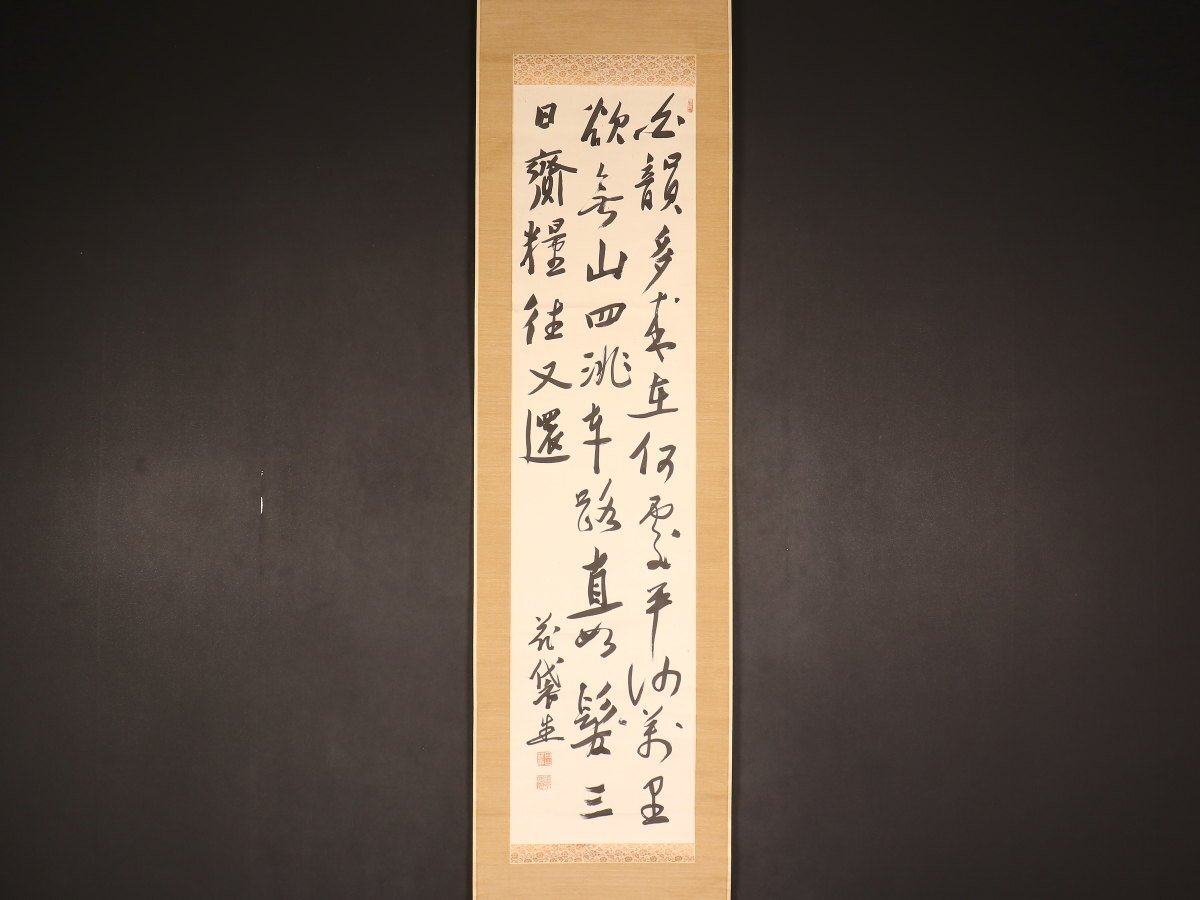 韻多來在何處平沙萬里
欲無山四洮車路直如髮三
日齎糧往又還
花袋生